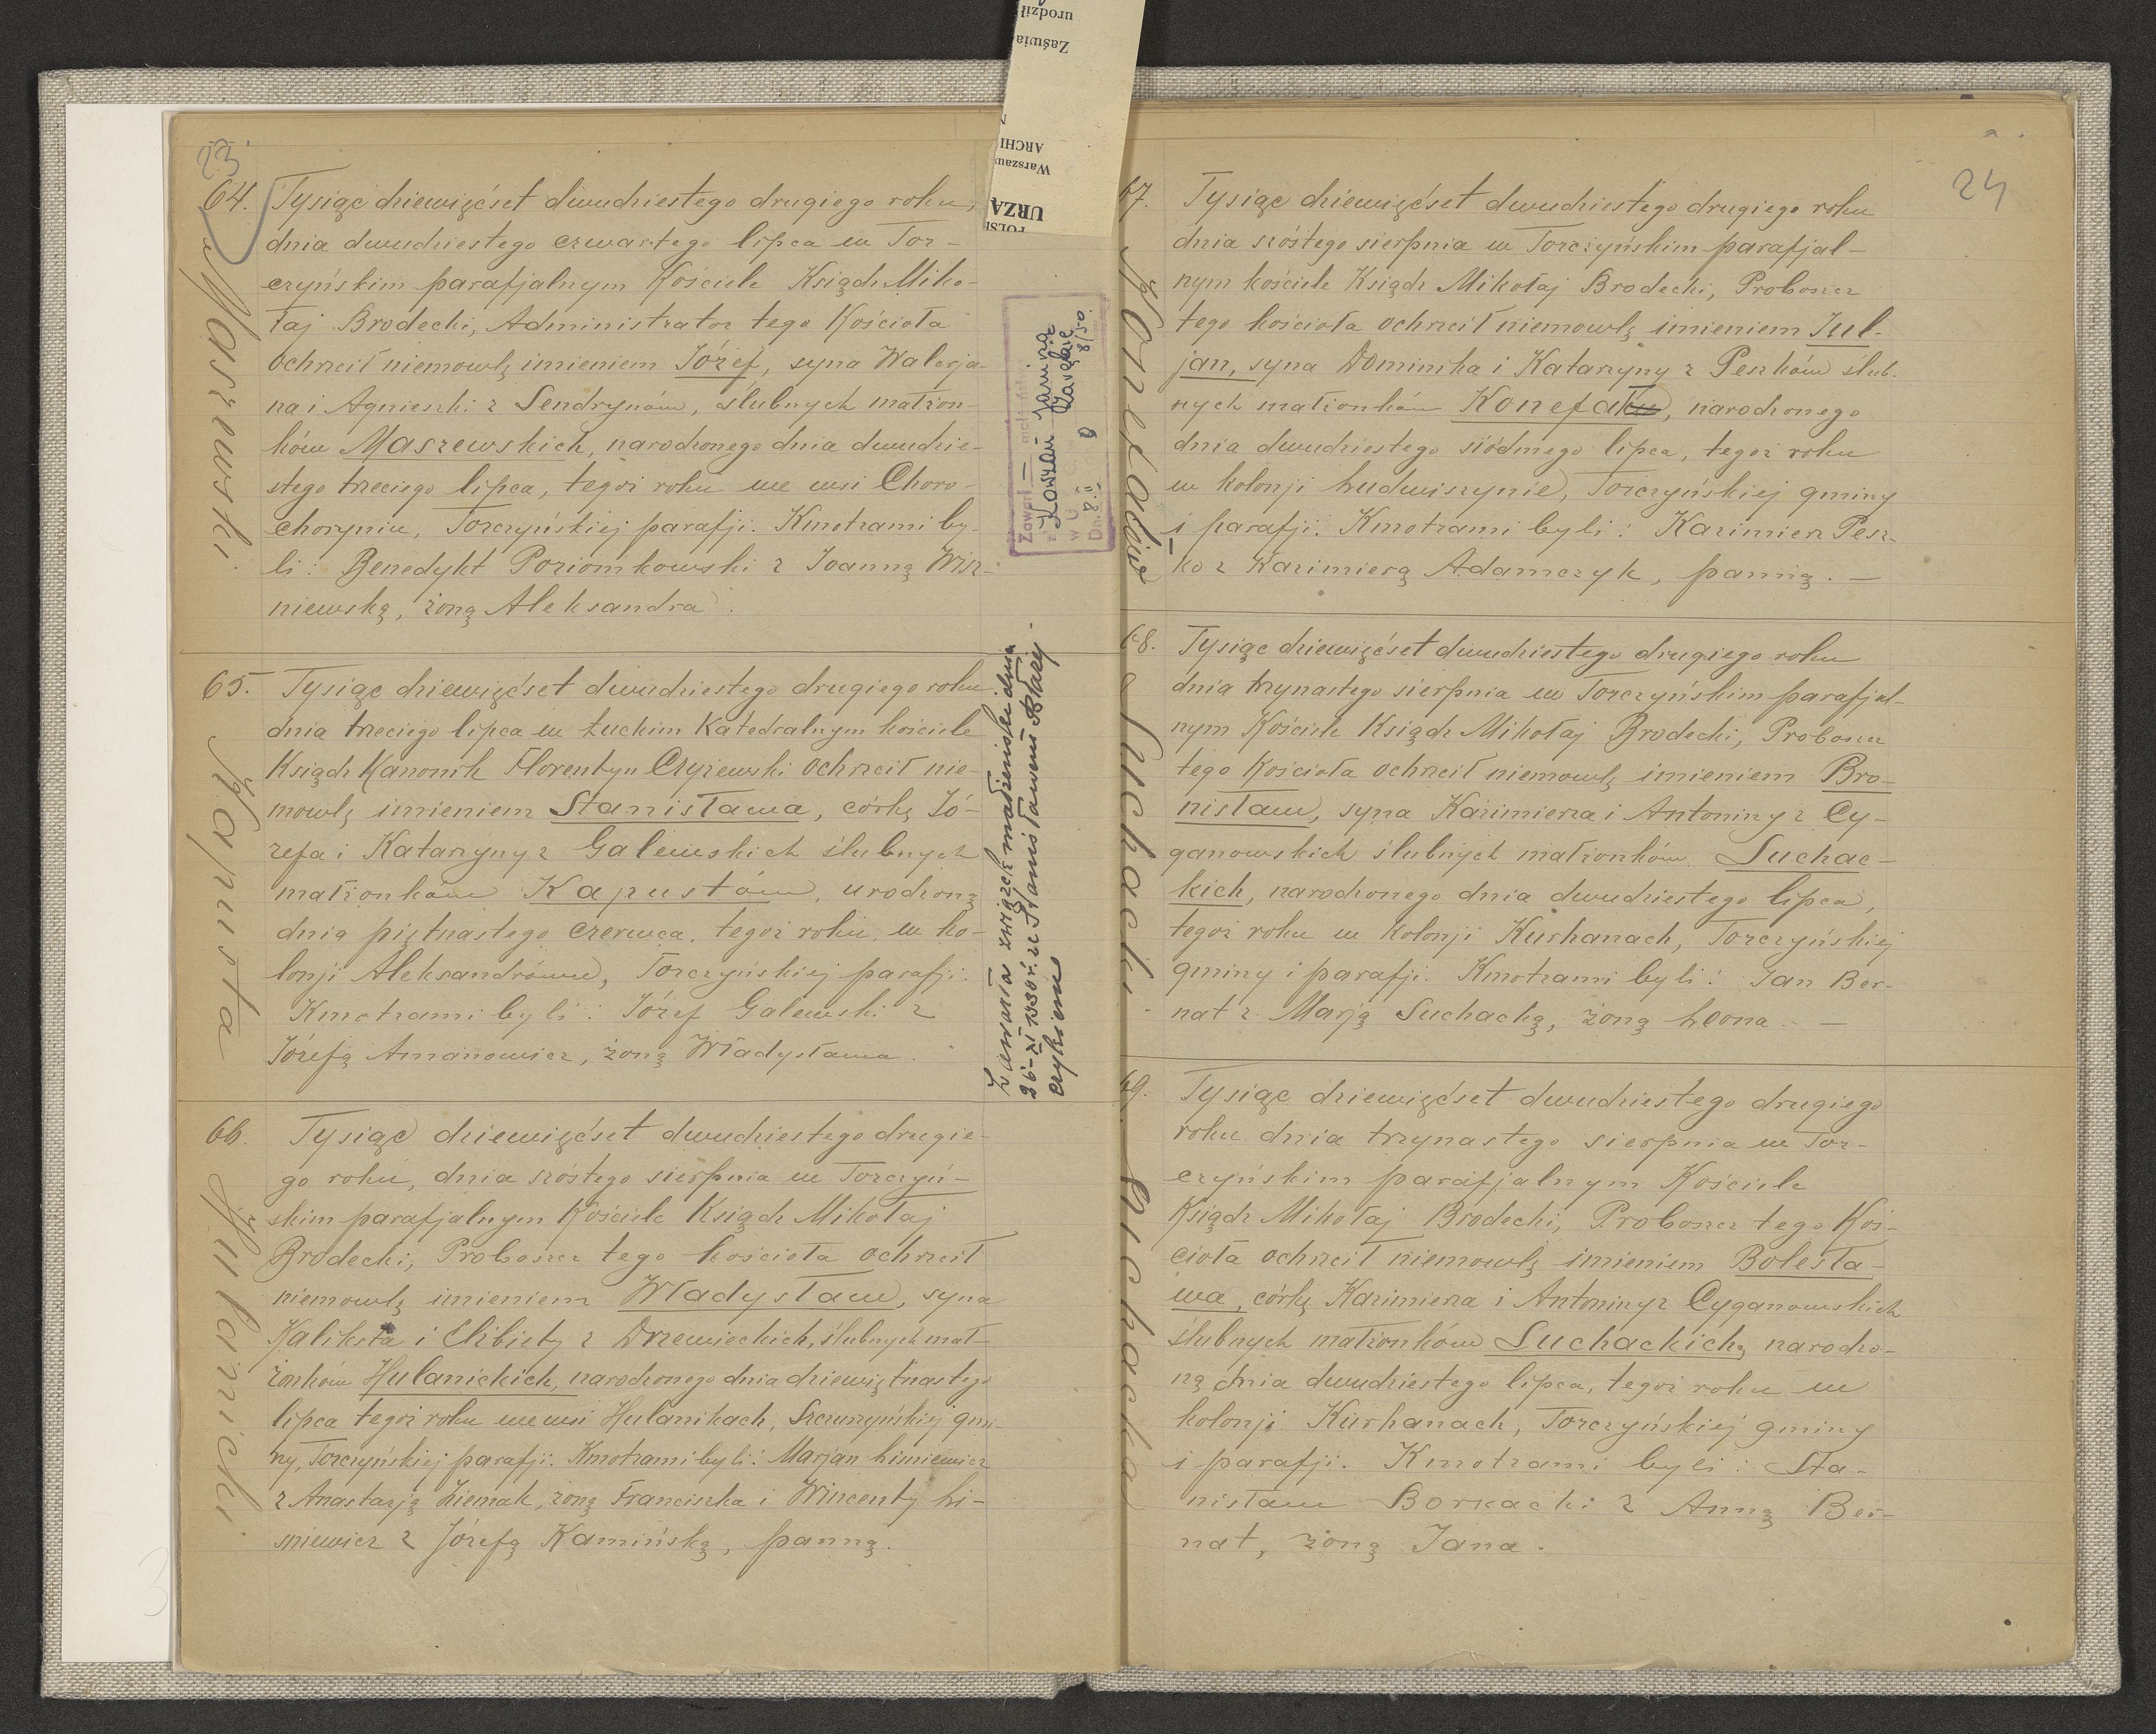 23.
64.
Maszewski.
Tysiąc dziewięćset dwudziestego drugiego roku,
dnia dwudziestego czwartego lipca w Tor-
czyńskim parafjalnym Kościele Ksiądz Miko-
łaj Brodecki, Administrator tego Kościoła
ochrzcił niemowlę imieniem Józef, syna Walerja-
na i Agnieszki z Sendrynów, ślubnych małżon-
ków Maszewskich, narodzonego dnia dwudzie-
stego trzeciego lipca, tegoż roku we wsi Choro-
choryniu, Torczyńskiej parafji. Kmotrami by-
li: Benedykt Poziomkowski z Joanną Wisz-
niewską, żoną Aleksandra.
Zawarł
Janiną
w U
Dn. 8.II 8/50.
65.
Kapusta
Tysiąc dziewięćset dwudziestego drugiego roku
dnia trzeciego lipca w Łuckim Katedralnym kościele
Ksiądz Kanonik Florentyn Czyżewski ochrzcił nie-
mowlę imieniem Stanisława, córkę Jó-
zefa i Katarzyny z Galewskich ślubnych
małżonków Kapustów, urodzoną
dnia piętnastego czerwca, tegoż roku, w ko-
lonji Aleksandrówce, Torczyńskiej parafji.
Kmotrami byli: Józef Galewski z
Józefą Amanowicz, żoną Władysława.
Zawarła związek małżeński dnia
26-XI 1950 r. ze Stanisławem
66.
Hulanicki.
Tysiąc dziewięćset dwudziestego drugie-
go roku, dnia szóstego sierpnia w Torczyń-
skim parafjalnym Kościele Ksiądz Mikołaj
Brodecki, Proboszcz tego kościoła ochrzcił
niemowlę imieniem Władysław, syna
Kaliksta i Elżbiety z Drzewieckich, ślubnych mał-
żonków Hulanickich, narodzonego dnia dziewiętnastego
lipca tegoż roku we wsi Hulanikach, Szczurzyńskiej gmi-
ny, Torczyńskiej parafji. Kmotrami byli: Marjan Lisniewicz
z Anastazją Ziemak, żoną Franciszka i Wincenty Li-
sniewicz z Józefą Kamińską, panną.
POLSK
URZĄ
Warszaw
ARCHI
Zaświa
urodził
24
67.
Tysiąc dziewięćset dwudziestego drugiego roku
dnia szóstego sierpnia w Torczyńskim parafjal-
nym kościele Ksiądz Mikołaj Brodecki, Proboszcz
tego kościoła ochrzcił niemowlę imieniem Jul-
jan, syna Dominika i Katarzyny z Peszków ślub-
nych małżonków Konefał, narodzonego
dnia dwudziestego siódmego lipca, tegoż roku
w kolonji Ludwiszynie, Torczyńskiej gminy
i parafji. Kmotrami byli: Kazimierz Pesz-
ko z Kazimierą Adamczyk, panną. —
68.
Suchacki.
Tysiąc dziewięćset dwudziestego drugiego roku
dnia trzynastego sierpnia w Torczyńskim parafjal-
nym Kościele Ksiądz Mikołaj Brodecki, Proboszcz
tego Kościoła ochrzcił niemowlę imieniem Bro-
nisław, syna Kazimierza i Antoniny z Cy-
ganowskich ślubnych małżonków Suchac-
kich, narodzonego dnia dwudziestego lipca,
tegoż roku w kolonji Kurhanach, Torczyńskiej
gminy i parafji. Kmotrami byli: Jan Ber-
nat z Marją Suchacką, żoną Leona. —
69.
Suchacka
Tysiąc dziewięćset dwudziestego drugiego
roku dnia trzynastego sierpnia w Tor-
czyńskim parafjalnym Kościele
Ksiądz Mikołaj Brodecki, Proboszcz tego Koś-
cioła ochrzcił niemowlę imieniem Bolesła-
wa, córkę Kazimierza i Antoniny z Cyganowskich
ślubnych małżonków Suchackich, narodzo-
ną dnia dwudziestego lipca, tegoż roku w
kolonji Kurhanach, Torczyńskiej gminy
i parafji. Kmotrami byli: Sta-
nisław Borkacki z Anną Ber-
nat, żoną Jana.